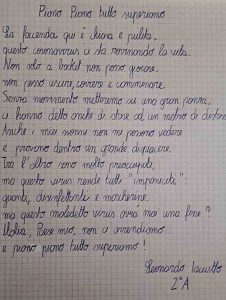 Piano Piano tutto superiamo
La faccenda qui è chiara e pulita,
questo coronavirus ci sta rovinando la vita.
Non solo a basket non posso giocare,
non posso uscire, correre e camminare.
Senza movimento metteremo su una gran panza,
ci hanno detto anche di stare ad un metro di distanza
Anche i miei nonni non mi possono vedere
e provano dentro un grande dispiacere.
Tra l'altro sono molto preoccupati,
ma questo virus rende tutti "impauriti":
guanti, disinfettante e mascherine.
ma questo maledetto virus avrà mai una fine?
Italia, Paese mio, non ci arrendiamo
e piano piano tutto superiamo!
Leonardo
2°A